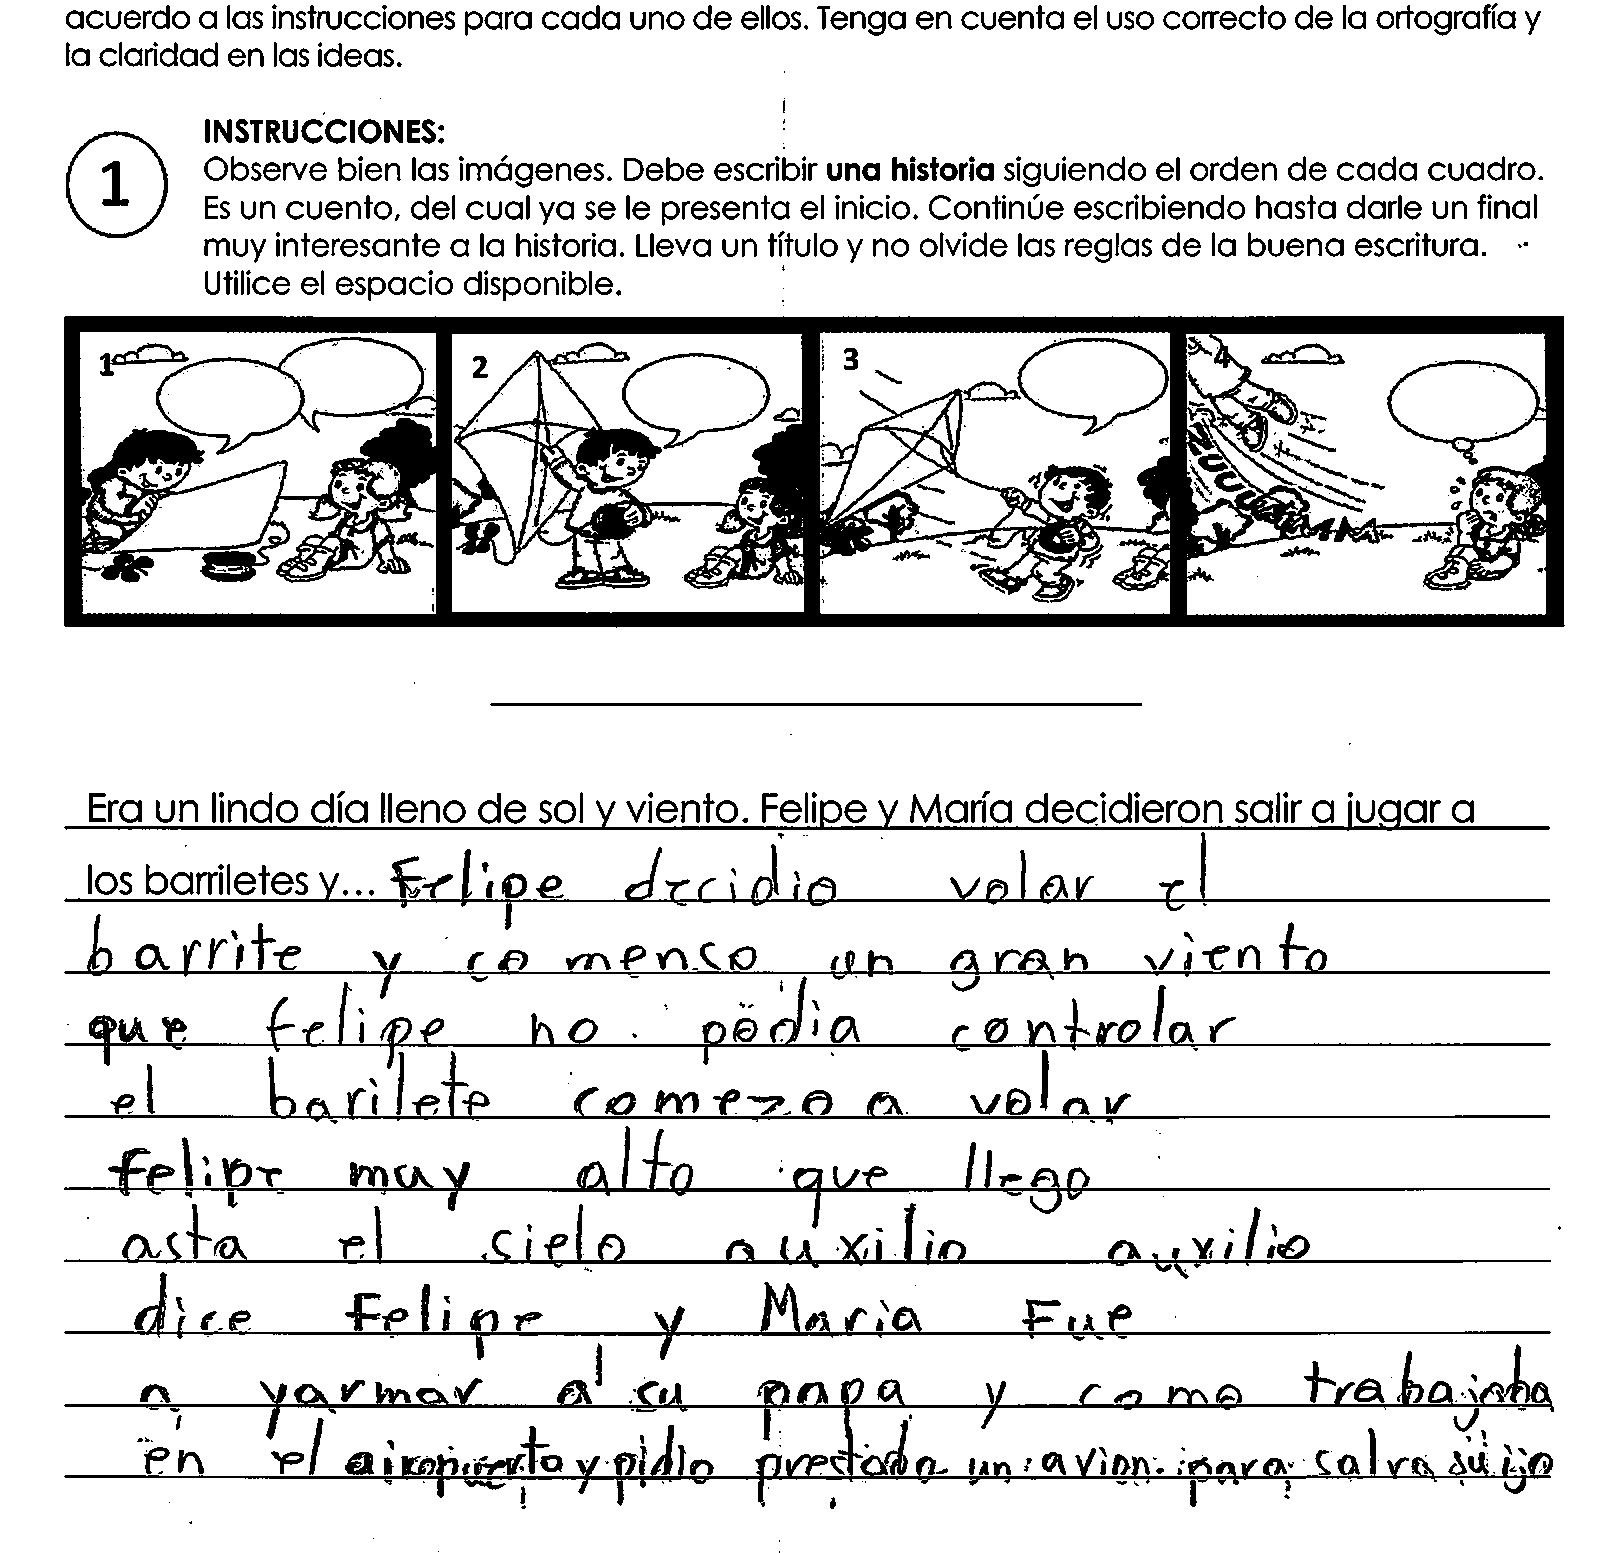 acuerdo a las instrucciones para cada uno de ellos. Tenga en cuenta el uso correcto de la ortografía y
la claridad en las ideas.
1
INSTRUCCIONES:
Observe bien las imágenes. Debe escribir una historia siguiendo el orden de cada cuadro.
Es un cuento, del cual ya se le presenta el inicio. Continúe escribiendo hasta darle un final
muy interesante a la historia. Lleva un título y no olvide las reglas de la buena escritura.
Utilice el espacio disponible.
1 2 3 4
Era un lindo día lleno de sol y viento. Felipe y María decidieron salir a jugar a
los barriletes y... Felipe decidio volar el
barrite y comenso un gran viento
que felipe no podia controlar
el barilete comezo a volar
felipe muy alto que llego
asta el sielo auxilio auxilio
dice Felipe y Maria Fue
a yarmar a su papa y como trabajaba
en el airopuerto y pidio prestado un avion para salva su ijo